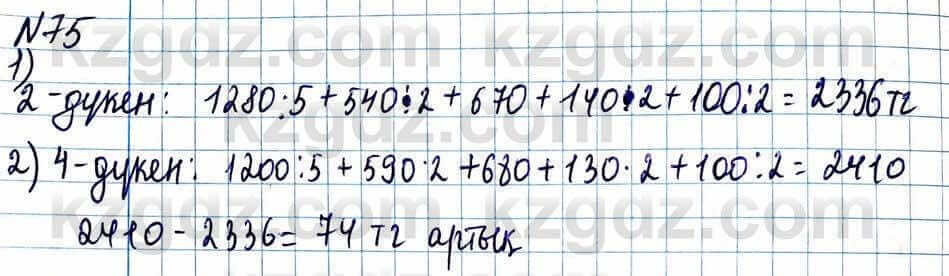 N75
1)
2-дукен: 1280:5+540·2+670+140·2+100:2=2336тг
2) 4-дукен: 1200:5+590·2+680+130·2+100:2=2410
2410-2336=74 тг артық
kzgdz.com